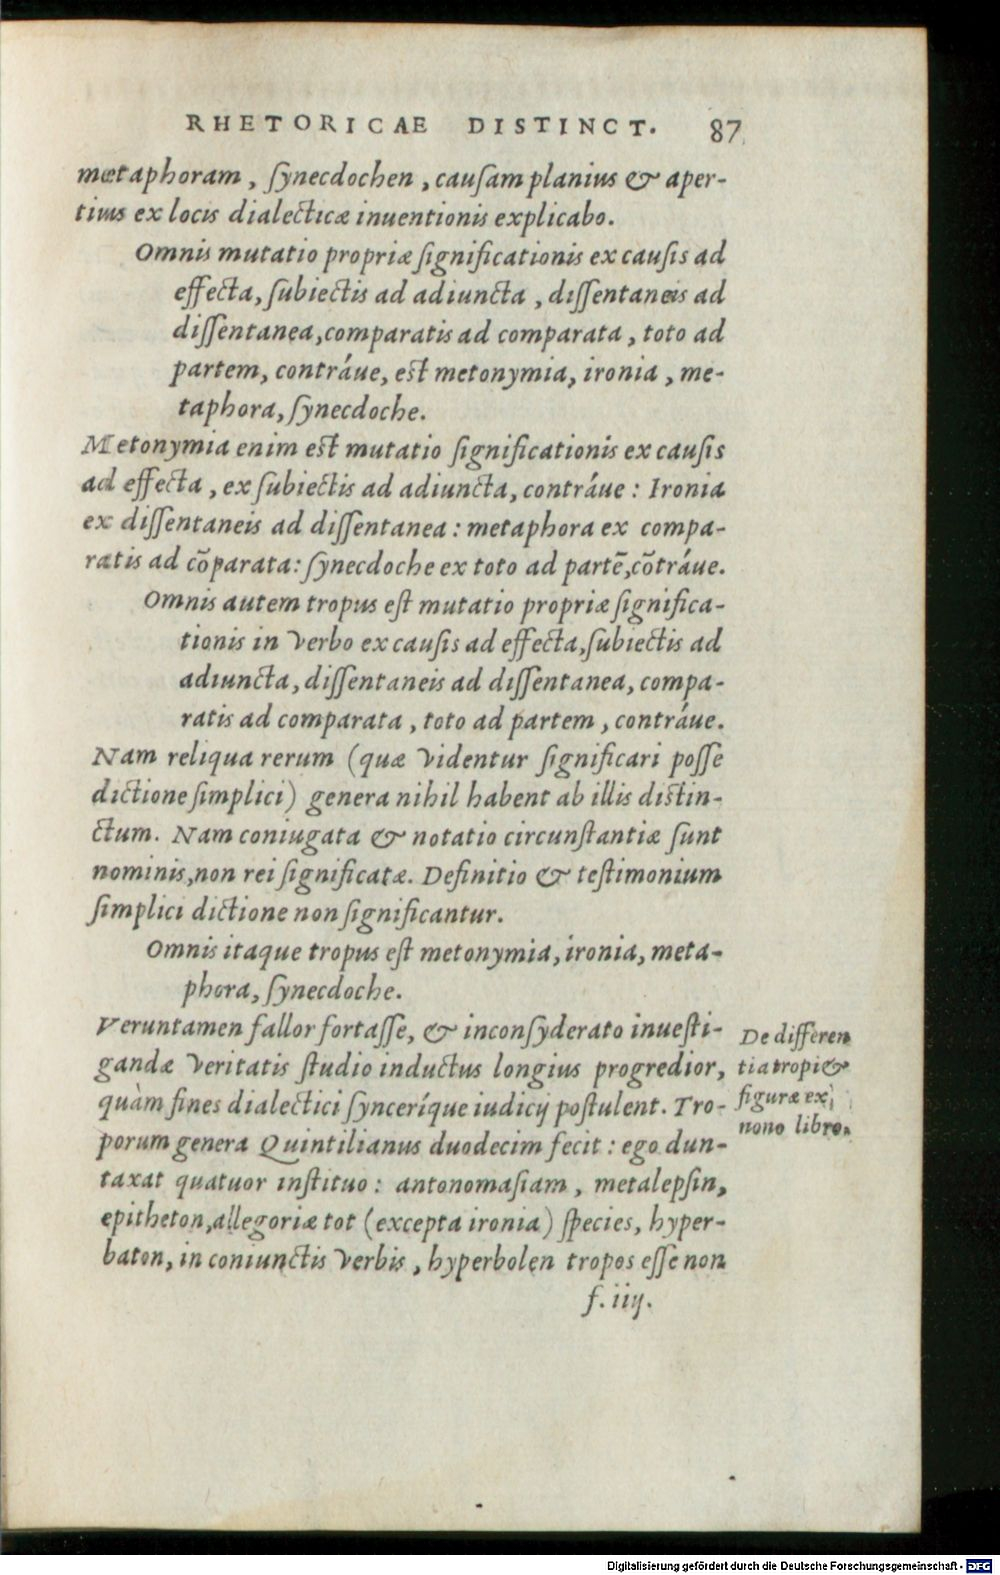 RHETORICAE DISTINCT. 87
metaphoram, ſynecdochen, cauſam planius & aper-
tius ex locis dialecticæ inuentionis explicabo.
Omnis mutatio propriæ ſignificationis ex cauſis ad
effecta, ſubiectis ad adiuncta, diſſentaneis ad
diſſentanea, comparatis ad comparata, toto ad
partem, contráue, est metonymia, ironia, me-
taphora, ſynecdoche.
Metonymia enim est mutatio ſignificationis ex cauſis
ad effecta, ex ſubiectis ad adiuncta, contráue: Ironia
ex diſſentaneis ad diſſentanea: metaphora ex compa-
ratis ad cōparata: ſynecdoche ex toto ad partē, cōtráue.
Omnis autem tropus eſt mutatio propriæ ſignifica-
tionis in verbo ex cauſis ad effecta, ſubiectis ad
adiuncta, diſſentaneis ad diſſentanea, compa-
ratis ad comparata, toto ad partem, contráue.
Nam reliqua rerum (quæ videntur ſignificari poſſe
dictione ſimplici) genera nihil habent ab illis distin-
ctum. Nam coniugata & notatio circunſtantiæ ſunt
nominis, non rei ſignificatæ. Definitio & teſtimonium
ſimplici dictione non ſignificantur.
Omnis itaque tropus eſt metonymia, ironia, meta-
phora, ſynecdoche.
Veruntamen fallor fortaſſe, & inconſyderato inueſti-
gandæ veritatis ſtudio inductus longius progredior,
quàm fines dialectici ſynceríque iudicij poſtulent. Tro-
porum genera Quintilianus duodecim fecit: ego dun-
taxat quatuor inſtituo: antonomaſiam, metalepſin,
epitheton, allegoriæ tot (excepta ironia) ſpecies, hyper-
baton, in coniunctis verbis, hyperbolen tropos eſſe non
De differen
tia tropi &
figuræ ex
nono libro.
f. iiij.
Digitalisierung gefördert durch die Deutsche Forschungsgemeinschaft - DFG